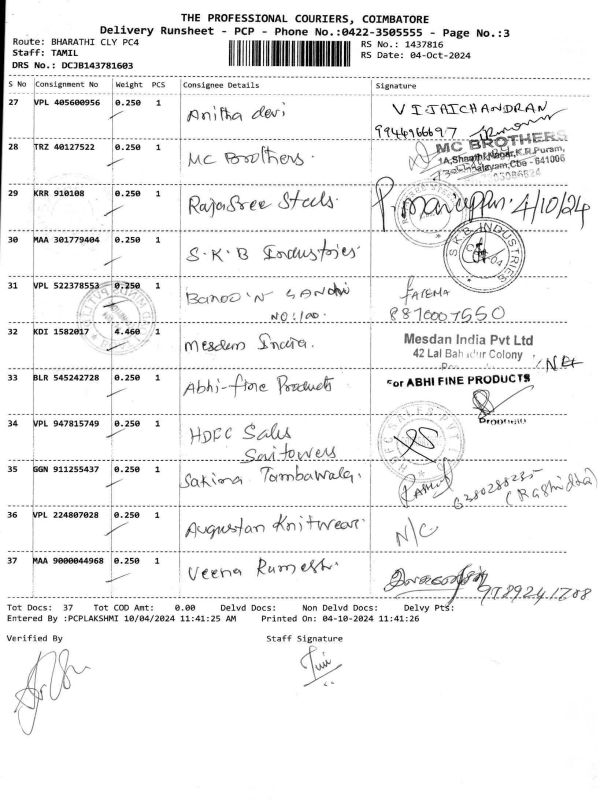 THE PROFESSIONAL COURIERS, COIMBATORE
Delivery Runsheet - PCP - Phone No.:0422-3505555 - Page No.:3
Route: BHARATHI CLY PC4
RS No.: 1437816
Staff: TAMIL
RS Date: 04-Oct-2024
DRS No.: DCJB143781603
S No Consignment No Weight PCS Consignee Details Signature
27 VPL 405600956 0.250 1 Anitha devi VIJAICHANDRAN
9944966697
28 TRZ 40127522 0.250 1 MC Brothers. MC BROTHERS
1A, Shasthi Nagar, K.R.Puram,
Cbe - 641006
29 KRR 910108 0.250 1 RajaSree Steels. 4/10/24
30 MAA 301779404 0.250 1 S.K.B Industries. SKB INDUSTRIES
31 VPL 522378553 0.250 1 FATEMA
NO:100. 8870007550
32 KDI 1582017 4.460 1 Mesdan India. Mesdan India Pvt Ltd
42 Lal Bahadur Colony
33 BLR 545242728 0.250 1 Abhi-fine Products For ABHI FINE PRODUCTS
34 VPL 947815749 0.250 1 HDFC Sales HDFC SALES PVT L
Saitowers
35 GGN 911255437 0.250 1 Sakina Tambawala. 6380288235
(Rashidha)
36 VPL 224807028 0.250 1 Augustan Knitwear. N/C
37 MAA 9000044968 0.250 1 Veena Ramesh.
Tot Docs: 37 Tot COD Amt: 0.00 Delvd Docs: Non Delvd Docs: Delvy Pts:
Entered By :PCPLAKSHMI 10/04/2024 11:41:25 AM Printed On: 04-10-2024 11:41:26
Verified By Staff Signature